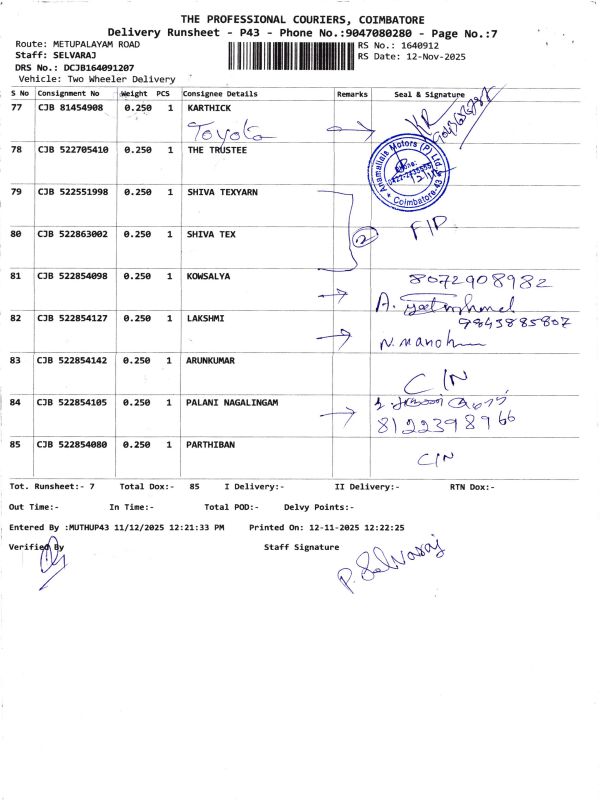 THE PROFESSIONAL COURIERS, COIMBATORE
Delivery Runsheet - P43 - Phone No.:9047080280 - Page No.:7
Route: METUPALAYAM ROAD
Staff: SELVARAJ
DRS No.: DCJB164091207
Vehicle: Two Wheeler Delivery
RS No.: 1640912
RS Date: 12-Nov-2025
S No Consignment No Weight PCS Consignee Details Remarks Seal & Signature
77 CJB 81454908 0.250 1 KARTHICK
Toyota
78 CJB 522705410 0.250 1 THE TRUSTEE
Anamallais Motors (P) Ltd.
Phone:
Coimbatore-43
79 CJB 522551998 0.250 1 SHIVA TEXYARN
80 CJB 522863002 0.250 1 SHIVA TEX
2
F/P
81 CJB 522854098 0.250 1 KOWSALYA
8072908982
82 CJB 522854127 0.250 1 LAKSHMI
9843885807
83 CJB 522854142 0.250 1 ARUNKUMAR
C/N
84 CJB 522854105 0.250 1 PALANI NAGALINGAM
8122398966
85 CJB 522854080 0.250 1 PARTHIBAN
C/N
Tot. Runsheet:- 7 Total Dox:- 85 I Delivery:- II Delivery:- RTN Dox:-
Out Time:- In Time:- Total POD:- Delvy Points:-
Entered By :MUTHUP43 11/12/2025 12:21:33 PM Printed On: 12-11-2025 12:22:25
Verified By Staff Signature
P. Selvaraj